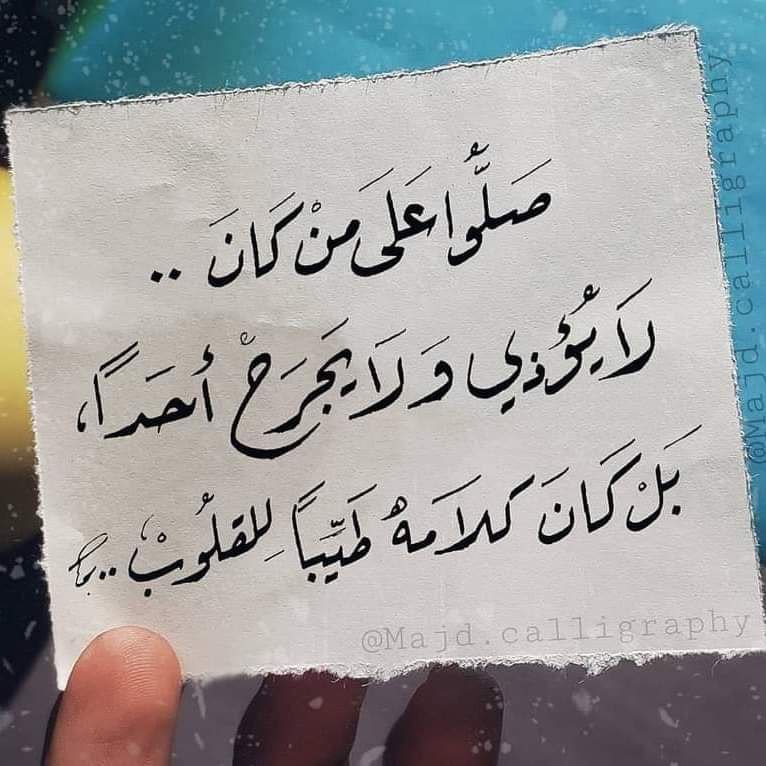 صَلُّوا عَلَى مَنْ كَانَ ..
لَا يُؤذِي وَ لَا يَجْرَحْ أَحَدَاً،
بَلْ كَانَ كَلَامَهُ طَيِّبَاً لِلقلُوبْ ..
@Majd.calligraphy
@Majd.calligraphy